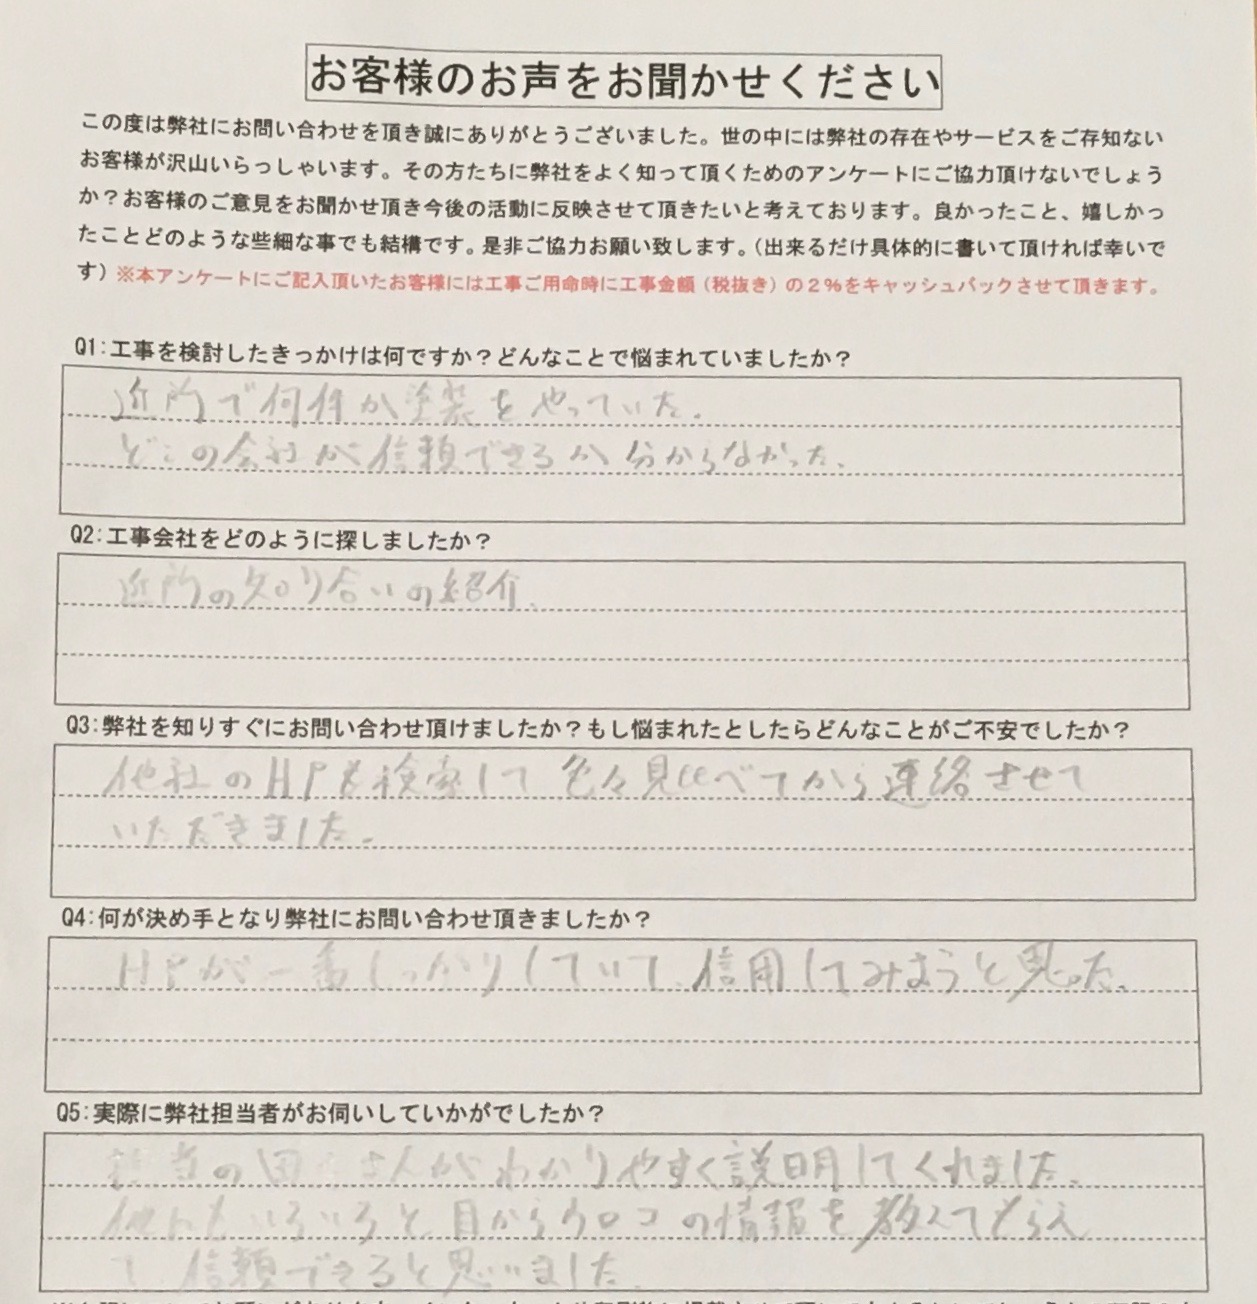 お客様のお声をお聞かせください
この度は弊社にお問い合わせを頂き誠にありがとうございました。世の中には弊社の存在やサービスをご存知ない
お客様が沢山いらっしゃいます。その方たちに弊社をよく知って頂くためのアンケートにご協力頂けないでしょう
か？お客様のご意見をお聞かせ頂き今後の活動に反映させて頂きたいと考えております。良かったこと、嬉しかっ
たことどのような些細な事でも結構です。是非ご協力お願い致します。（出来るだけ具体的に書いて頂ければ幸いで
す）※本アンケートにご記入頂いたお客様には工事ご用命時に工事金額（税抜き）の２％をキャッシュバックさせて頂きます。
Q1：工事を検討したきっかけは何ですか？どんなことで悩まれていましたか？
近所で何件か塗装をやっていた。
どこの会社が信頼できるか分からなかった。
Q2：工事会社をどのように探しましたか？
近所の知り合いの紹介。
Q3：弊社を知りすぐにお問い合わせ頂けましたか？もし悩まれたとしたらどんなことがご不安でしたか？
他社のHPも検索して色々見比べてから連絡させて
いただきました。
Q4：何が決め手となり弊社にお問い合わせ頂きましたか？
HPが一番しっかりしていて、信用してみようと思った。
Q5：実際に弊社担当者がお伺いしていかがでしたか？
担当の田さんがわかりやすく説明してくれました。
他にもいろいろと、目からウロコの情報を教えてもらえ
て、信頼できると思いました。